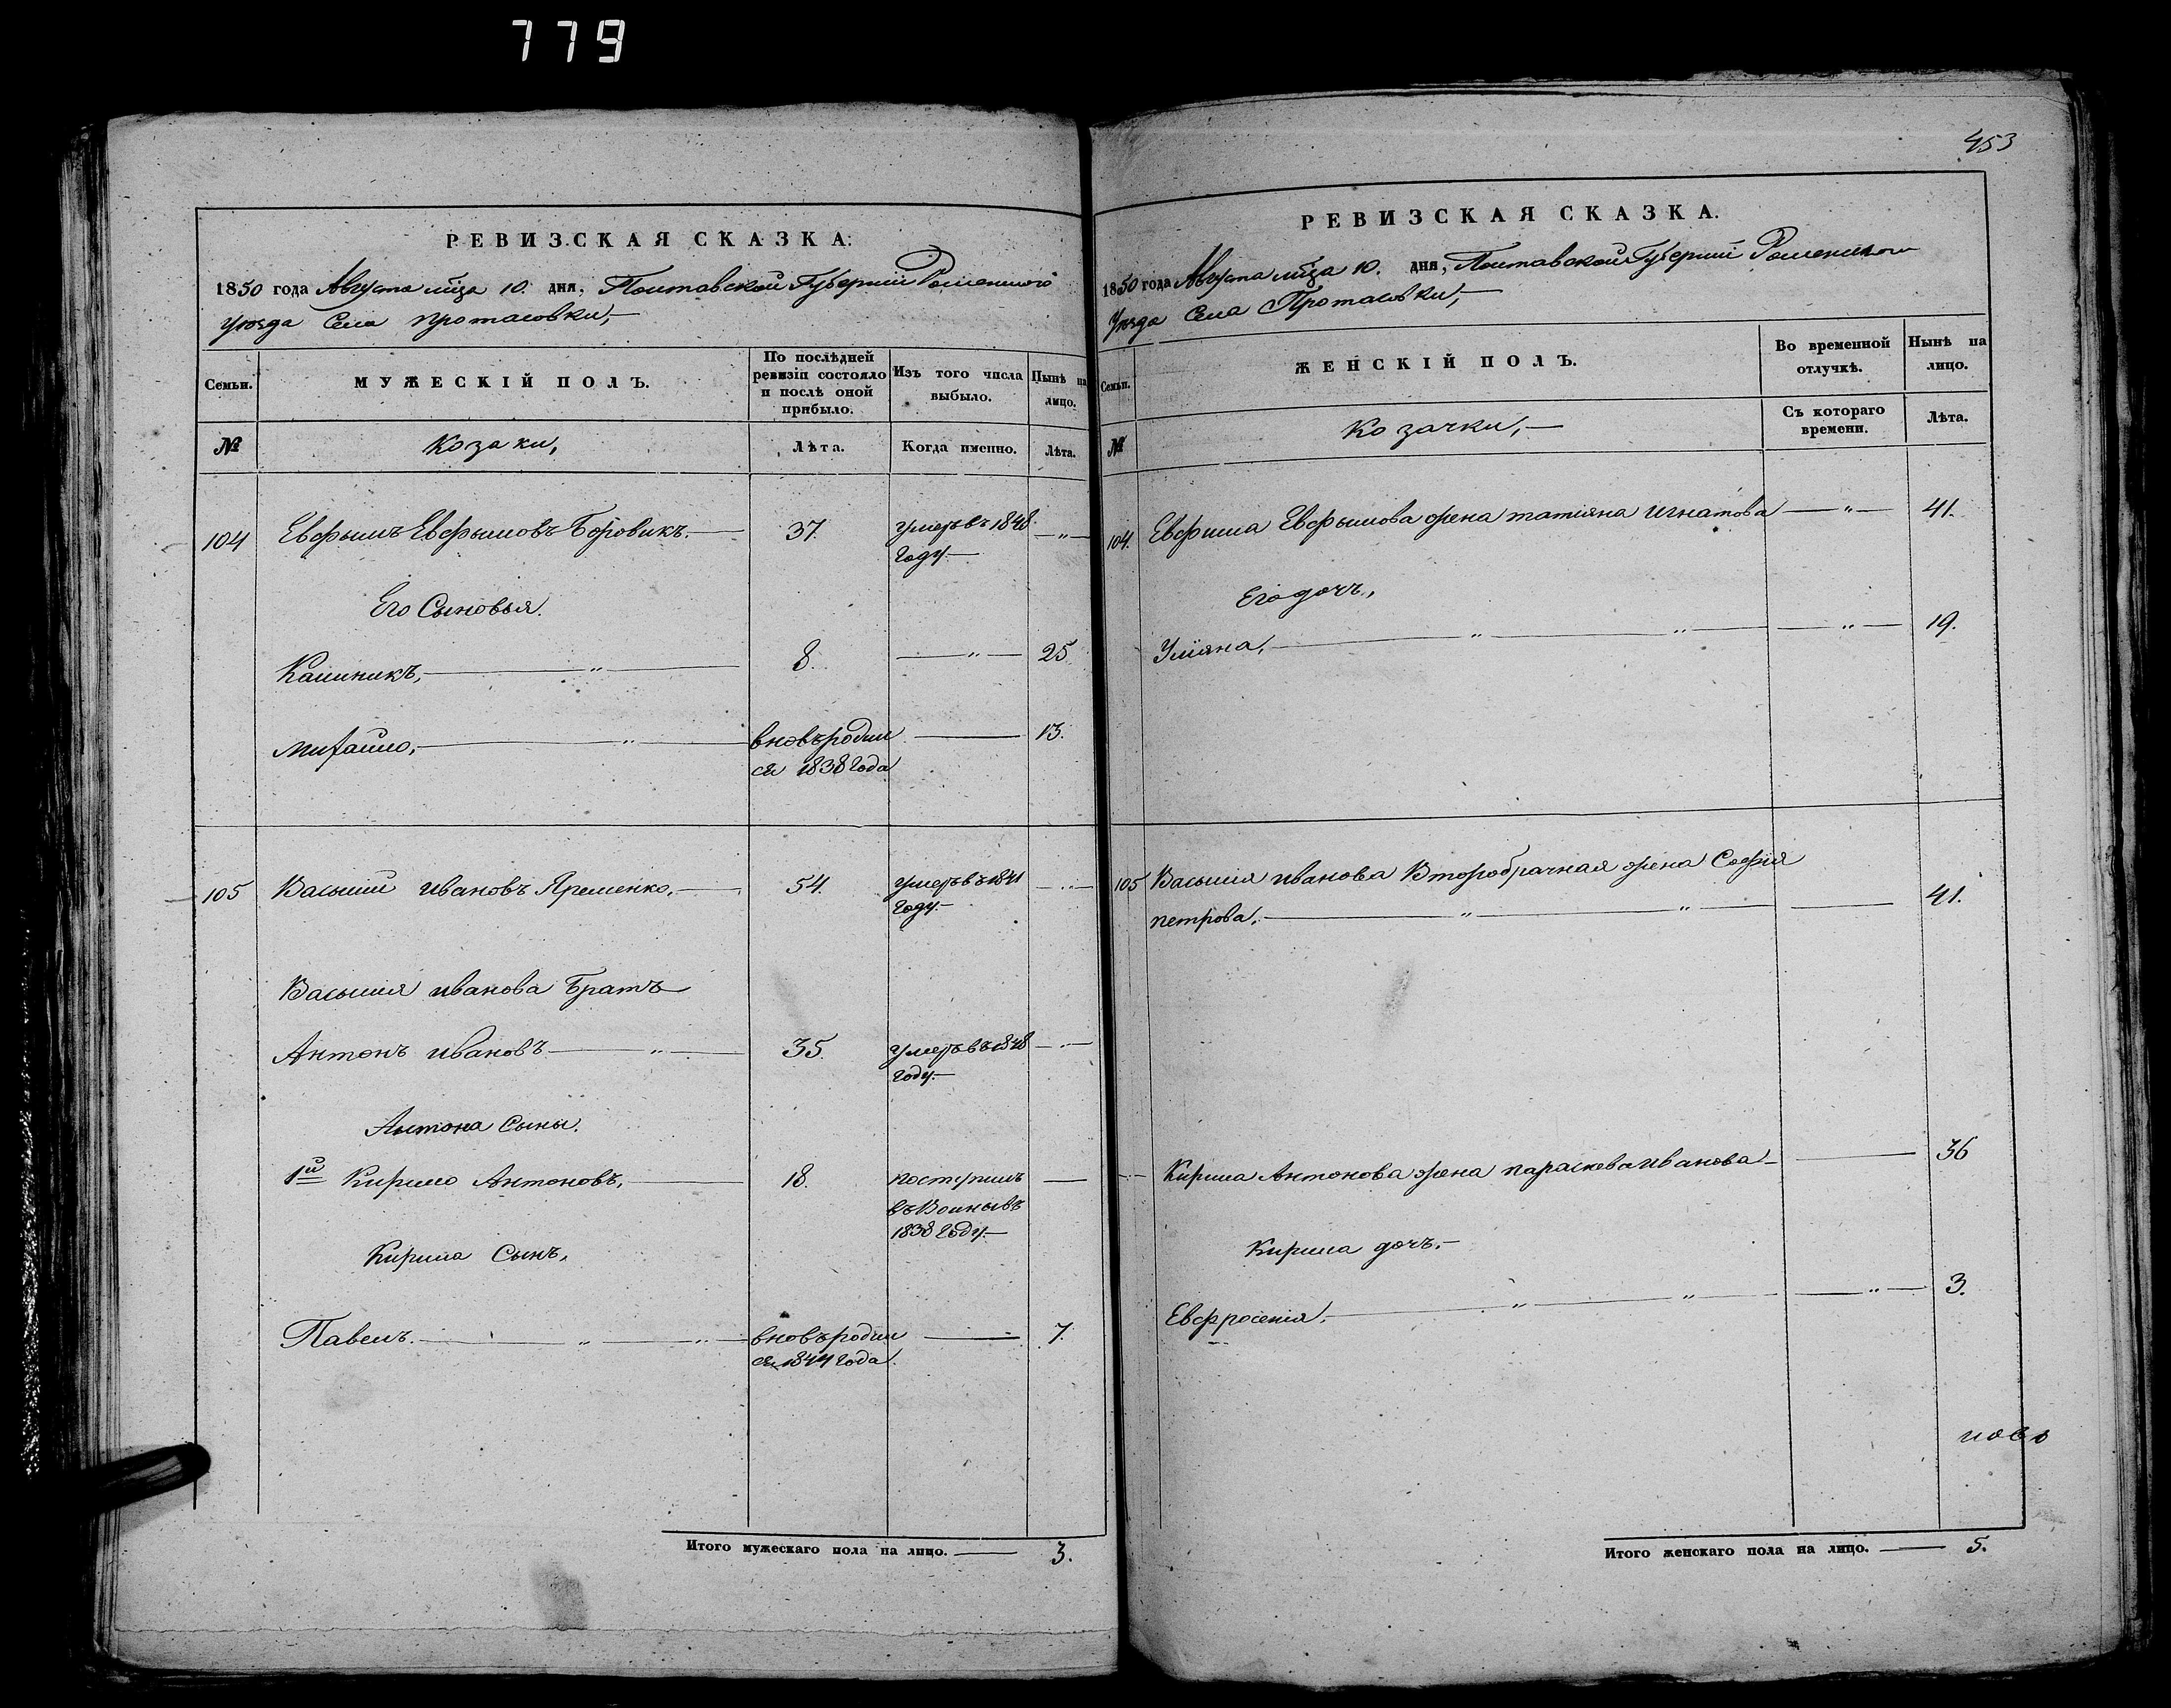 779
РЕВИЗСКАЯ СКАЗКА.
1850 года Августа мѣсца 10. дня, Полтавской Губерніи Роменского
уѣзда Села Протасовки,
Семьи.
МУЖЕСКІЙ ПОЛЪ.
По послѣдней ревизіи состояло и послѣ оной прибыло.
Изъ того числа выбыло.
Нынѣ на лицо.
№
Козаки,
Лѣта.
Когда именно.
Лѣта.
104 Евфимъ Евфимовъ Боровикъ. 37. умеръ въ 1848 „
году
Его Сыновья.
Калиникъ, „ 8. „ 25.
Михайло, „ вновь роди 13.
ся 1838 года
105 Василий Ивановъ Яременко, 54. умеръ в 1841 „
году.
Василия Иванова Братъ
Антонъ Ивановъ „ 35. умеръ въ 1848 „
году.
Антона Сыны.
1й Кирило Антоновъ, 18. поступилъ
въ Воины въ
1838 году.
Кирила Сынъ,
Павелъ. „ „ вновь роди 7.
ся 1844 года.
453
РЕВИЗСКАЯ СКАЗКА.
1850 года Августа мѣсца 10. дня, Полтавской Губерніи Роменского
Уѣзда Села Протасовки,
Семьи.
ЖЕНСКІЙ ПОЛЪ.
Во временной отлучкѣ.
Нынѣ на лицо.
№
Козачки,
Съ котораго времени.
Лѣта.
104. Евфима Евфимова жена татіяна Игнатова „ 41.
Его дочь,
Уліяна, „ „ „ 19.
105 Василия Иванова Второбрачная жена Софія
петрова, „ „ 41.
Кирила Антонова жена параскева Иванова 36
Кирила дочь.
Евфросенія. „ „ „ 3.
Итого мужескаго пола на лицо. 3.
Итого женскаго пола на лицо. 5.